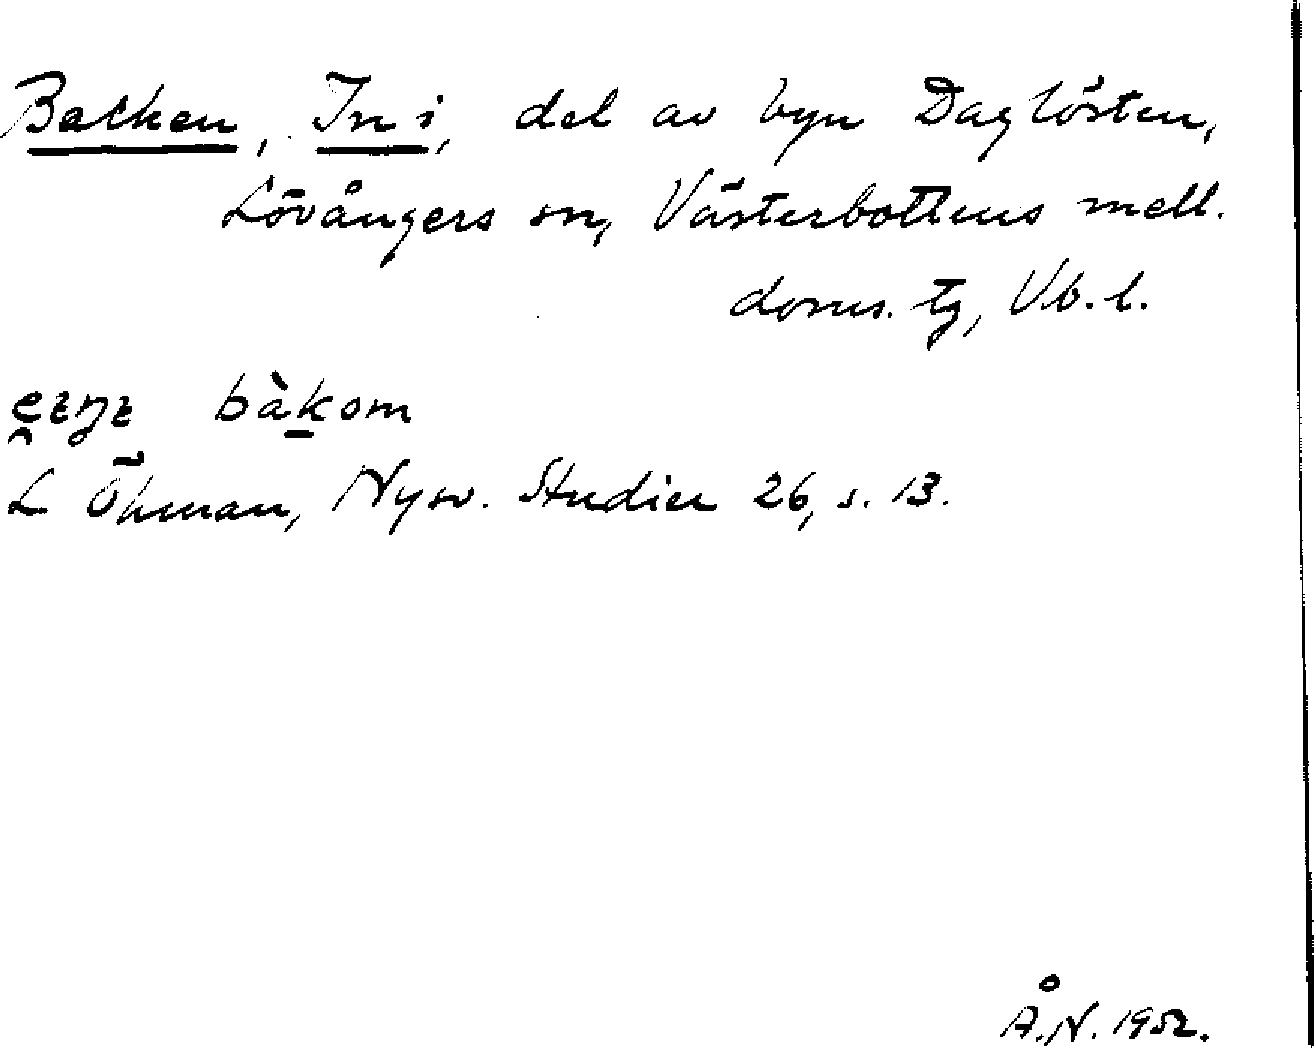 Backen, In i, del av byn Daglösten,
Lövångers sn, Västerbottens mell.
doms. tg, Vb. l.
bàkom
L Öhman, Nysv. Studier 26, s. 13.
Å.N. 1952.